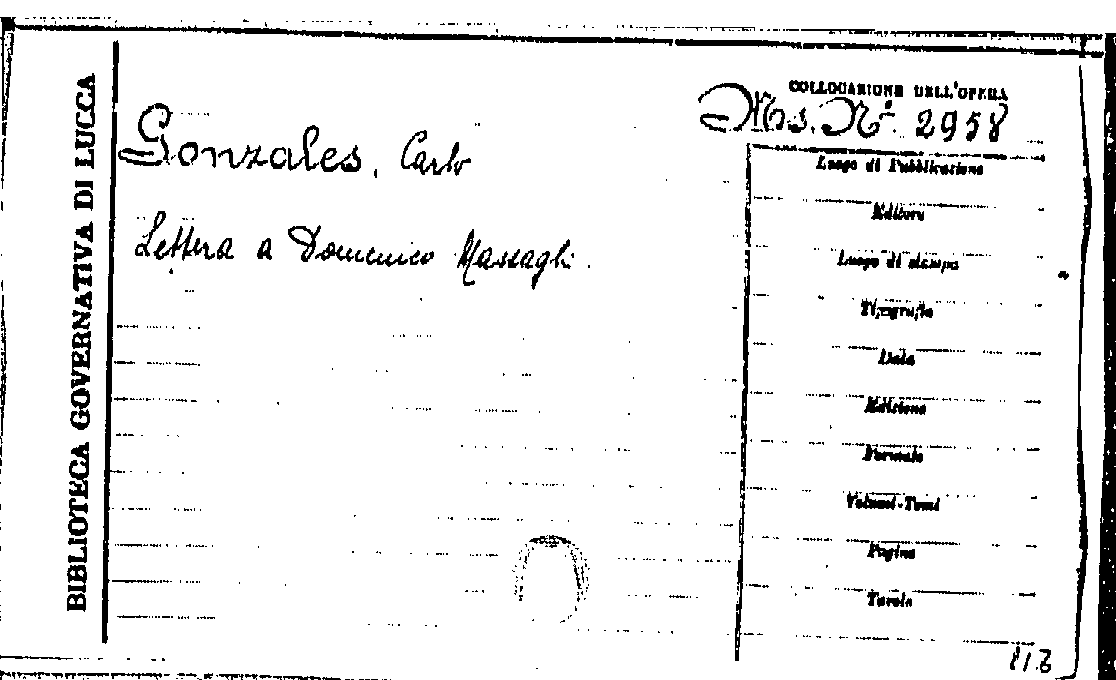 BIBLIOTECA GOVERNATIVA DI LUCCA
COLLOCAZIONE DELL'OPERA
Ms. N.º 2958
Gonzales, Carlo
Lettera a Domenico Massagli.
Luogo di Pubblicazione
Editore
Luogo di stampa
Tipografia
Data
Edizione
Formato
Volumi-Tomi
Pagine
Tavole